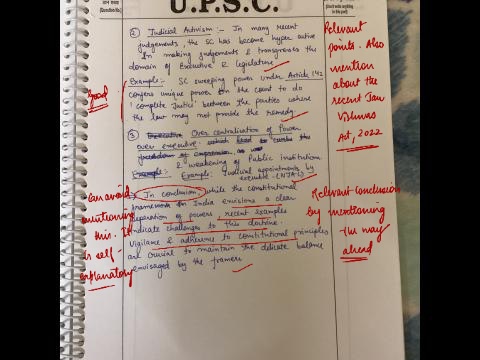 U.P.S.C.
(Question No.)
(Don't write anything in this part)
② Judicial Activism :- In many recent
judgements, the SC has become hyper active
in making judgements & transgresses the
domain of Executive & legislature
Example: SC sweeping power under Article 142
confers unique power on the court to do
'complete Justice' between the parties where
the law may not provide the remedy.
③ Executive Over centralisation of Power
over executive.
& weakening of Public institution
Example: Example: Judicial appointments by
executive (NJAC)
In conclusion, while the constitutional
framework for India envisions a clear
separation of powers, recent examples
indicate challenges to this doctrine.
Vigilance & adherence to constitutional principles
are crucial to maintain the delicate balance
envisaged by the framers
Good
Can avoid
mentioning
this. It
is self-
explanatory
Relevant
points. Also
mention
about the
recent Jan
Vishwas
Act, 2022
Relevant conclusion
by mentioning
the way
ahead